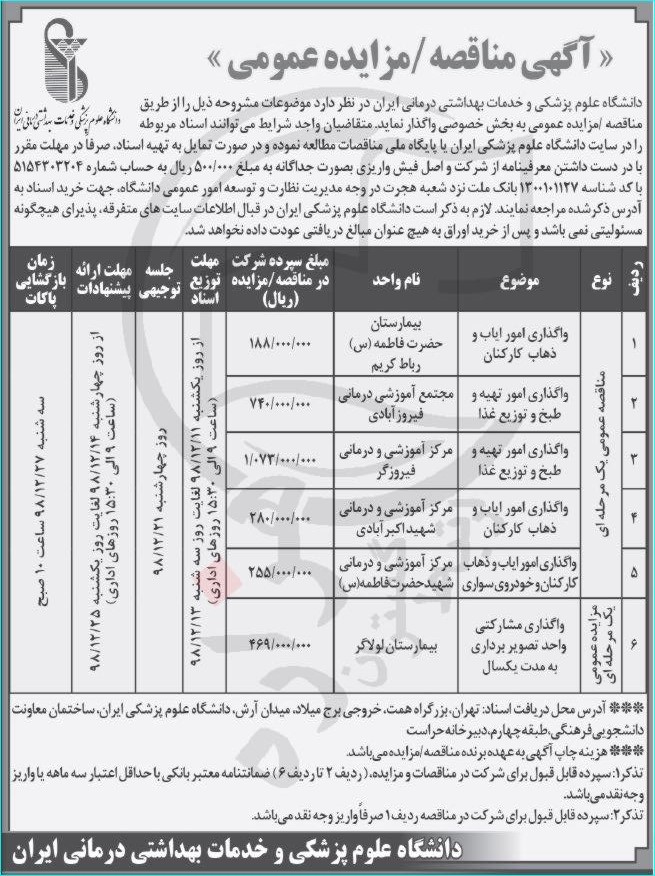 « آگهی مناقصه /مزایده عمومی »
دانشگاه علوم پزشکی و خدمات بهداشتی درمانی ایران
دانشگاه علوم پزشکی و خدمات بهداشتی درمانی ایران در نظر دارد موضوعات مشروحه ذیل را از طریق
مناقصه /مزایده عمومی به بخش خصوصی واگذار نماید. متقاضیان واجد شرایط می‌توانند اسناد مربوطه
را در سایت دانشگاه علوم پزشکی ایران یا پایگاه ملی مناقصات مطالعه نموده و در صورت تمایل به تهیه اسناد، صرفاً در مهلت مقرر
با در دست داشتن معرفینامه از شرکت و اصل فیش واریزی بصورت جداگانه به مبلغ ۵۰۰/۰۰۰ ریال به حساب شماره ۵۱۵۴۳۰۳۲۰۴
با کد شناسه ۱۳۰۰۱۰۱۱۲۷ بانک ملت نزد شعبه هجرت در وجه مدیریت نظارت و توسعه امور عمومی دانشگاه، جهت خرید اسناد به
آدرس ذکر شده مراجعه نمایند. لازم به ذکر است دانشگاه علوم پزشکی ایران در قبال اطلاعات سایت های متفرقه، پذیرای هیچگونه
مسئولیتی نمی باشد و پس از خرید اوراق به هیچ عنوان مبالغ دریافتی عودت داده نخواهد شد.
ردیف
نوع
موضوع
نام واحد
مبلغ سپرده شرکت
در مناقصه/مزایده
(ریال)
مهلت
توزیع
اسناد
جلسه
توجیهی
مهلت ارائه
پیشنهادات
زمان
بازگشایی
پاکات
۱
مناقصه عمومی یک مرحله ای
واگذاری امور ایاب و
ذهاب کارکنان
بیمارستان
حضرت فاطمه (س)
رباط کریم
۱۸۸/۰۰۰/۰۰۰
از روز یکشنبه ۹۸/۱۲/۱۱ لغایت روز سه شنبه ۹۸/۱۲/۱۳
(ساعت ۹ الی ۱۵:۳۰ روزهای اداری)
روز چهارشنبه ۹۸/۱۲/۲۱
از روز چهارشنبه ۹۸/۱۲/۱۴ لغایت روز یکشنبه ۹۸/۱۲/۲۵
(ساعت ۹ الی ۱۵:۳۰ روزهای اداری)
سه شنبه ۹۸/۱۲/۲۷ ساعت ۱۰ صبح
۲
واگذاری امور تهیه و
طبخ و توزیع غذا
مجتمع آموزشی درمانی
فیروزآبادی
۷۴۰/۰۰۰/۰۰۰
۳
واگذاری امور تهیه و
طبخ و توزیع غذا
مرکز آموزشی و درمانی
فیروزگر
۱/۰۷۳/۰۰۰/۰۰۰
۴
واگذاری امور ایاب و
ذهاب کارکنان
مرکز آموزشی و درمانی
شهید اکبرآبادی
۲۸۰/۰۰۰/۰۰۰
۵
واگذاری امور ایاب و ذهاب
کارکنان و خودروی سواری
مرکز آموزشی و درمانی
شهید حضرت فاطمه (س)
۲۵۵/۰۰۰/۰۰۰
۶
مزایده عمومی
یک مرحله ای
واگذاری مشارکتی
واحد تصویر برداری
به مدت یکسال
بیمارستان لولاگر
۴۶۹/۰۰۰/۰۰۰
❋❋❋ آدرس محل دریافت اسناد: تهران، بزرگراه همت، خروجی برج میلاد، میدان آرش، دانشگاه علوم پزشکی ایران، ساختمان معاونت
دانشجویی فرهنگی، طبقه چهارم، دبیرخانه حراست
❋❋❋ هزینه چاپ آگهی به عهده برنده مناقصه/مزایده می‌باشد.
تذکر۱: سپرده قابل قبول برای شرکت در مناقصات و مزایده، (ردیف ۲ تا ردیف ۶) ضمانتنامه معتبر بانکی با حداقل اعتبار سه ماهه یا واریز
وجه نقد می‌باشد.
تذکر۲: سپرده قابل قبول برای شرکت در مناقصه ردیف ۱ صرفاً واریز وجه نقد می‌باشد.
دانشگاه علوم پزشکی و خدمات بهداشتی درمانی ایران